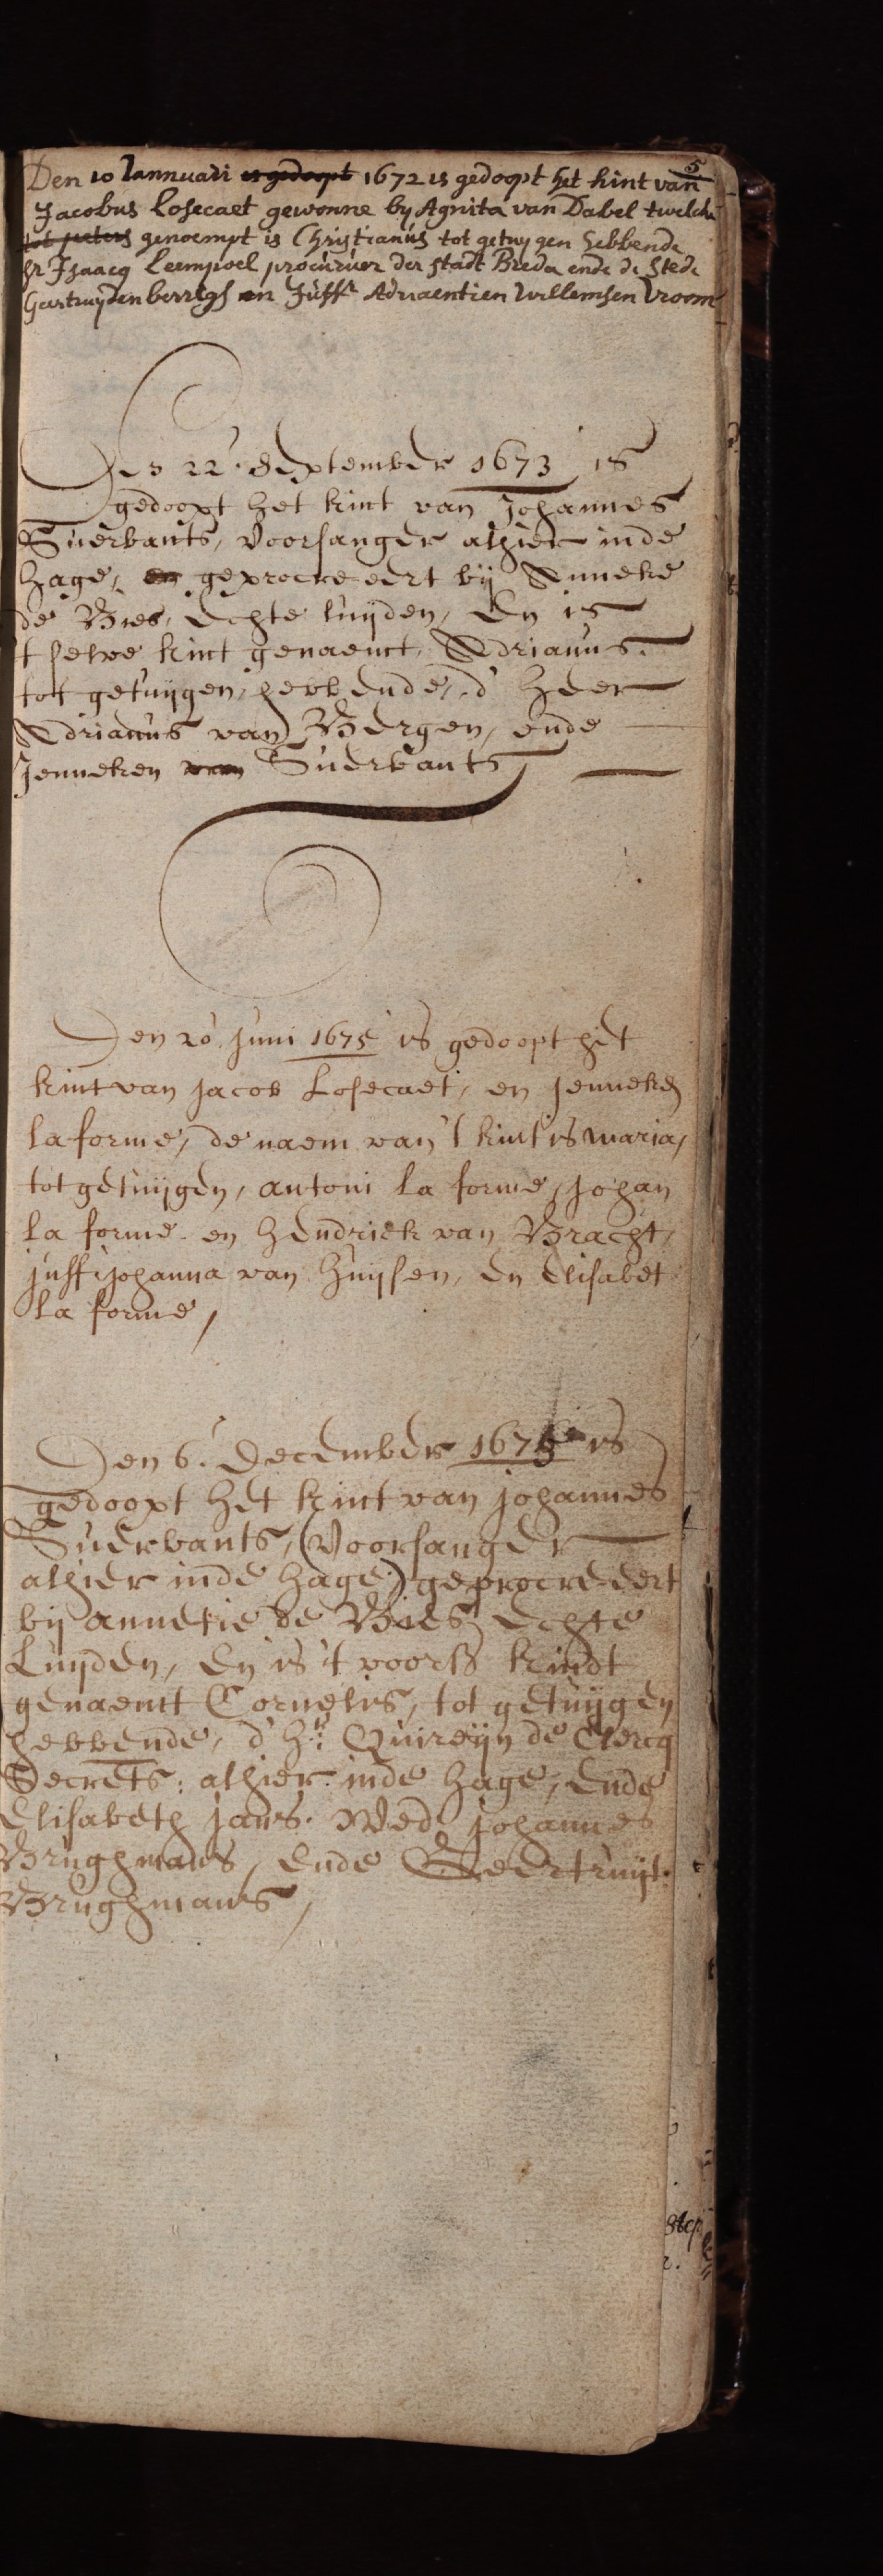 5
Den 10 Jannuari is gedoopt 1672 is gedoopt het kint van
Jacobus Losecaet gewonne by Agnita van Dabel twelcke
tot peters genoempt is Christianus tot getuygen hebbende
hr Isaacq Leempoel procuruer der stadt Breda ende de stede
Geertruijdenberrigh en Juffr Adriaentien Willemsen Vroom
Den 22. September 1673 is
gedoopt het kint van Johannes
Suerbants, Voorsanger alhier inde
Hage, en geprocreeert bij Anneke
de Bies, Echte luijden, En is
t selve kint genaemt, Adrianus.
tot getuijgen, hebbende, d' Heer
Adrianus van Bergen, ende
Jenneken van Suerbants
Den 20 Juni 1675 is gedoopt het
kint van Jacob Losecaet, en Jenneken
la forme, de naem van 't kint is maria,
tot getuijgen, antoni la forme, Johan
la forme en Hendriek van Bracht,
juff. Johanna van Huijsen, En Elisabet
la forme,
Den 6. December 1675 is
gedoopt het kint van Johannes
Suerbants, (Voorsanger
alhier inde Hage) geprocre-eert
bij annetie de Bies, Echte
Luijden, En is 't voors kindt
genaemt Cornelis, tot getuijgen
hebbende, d' Hr. Quireijn de Clercq
Secrets: alhier inde Hage, Ende
Elisabeth Jans. Wed. Johannes
Brughmans, Ende Geertruijt.
Brughmans,
step